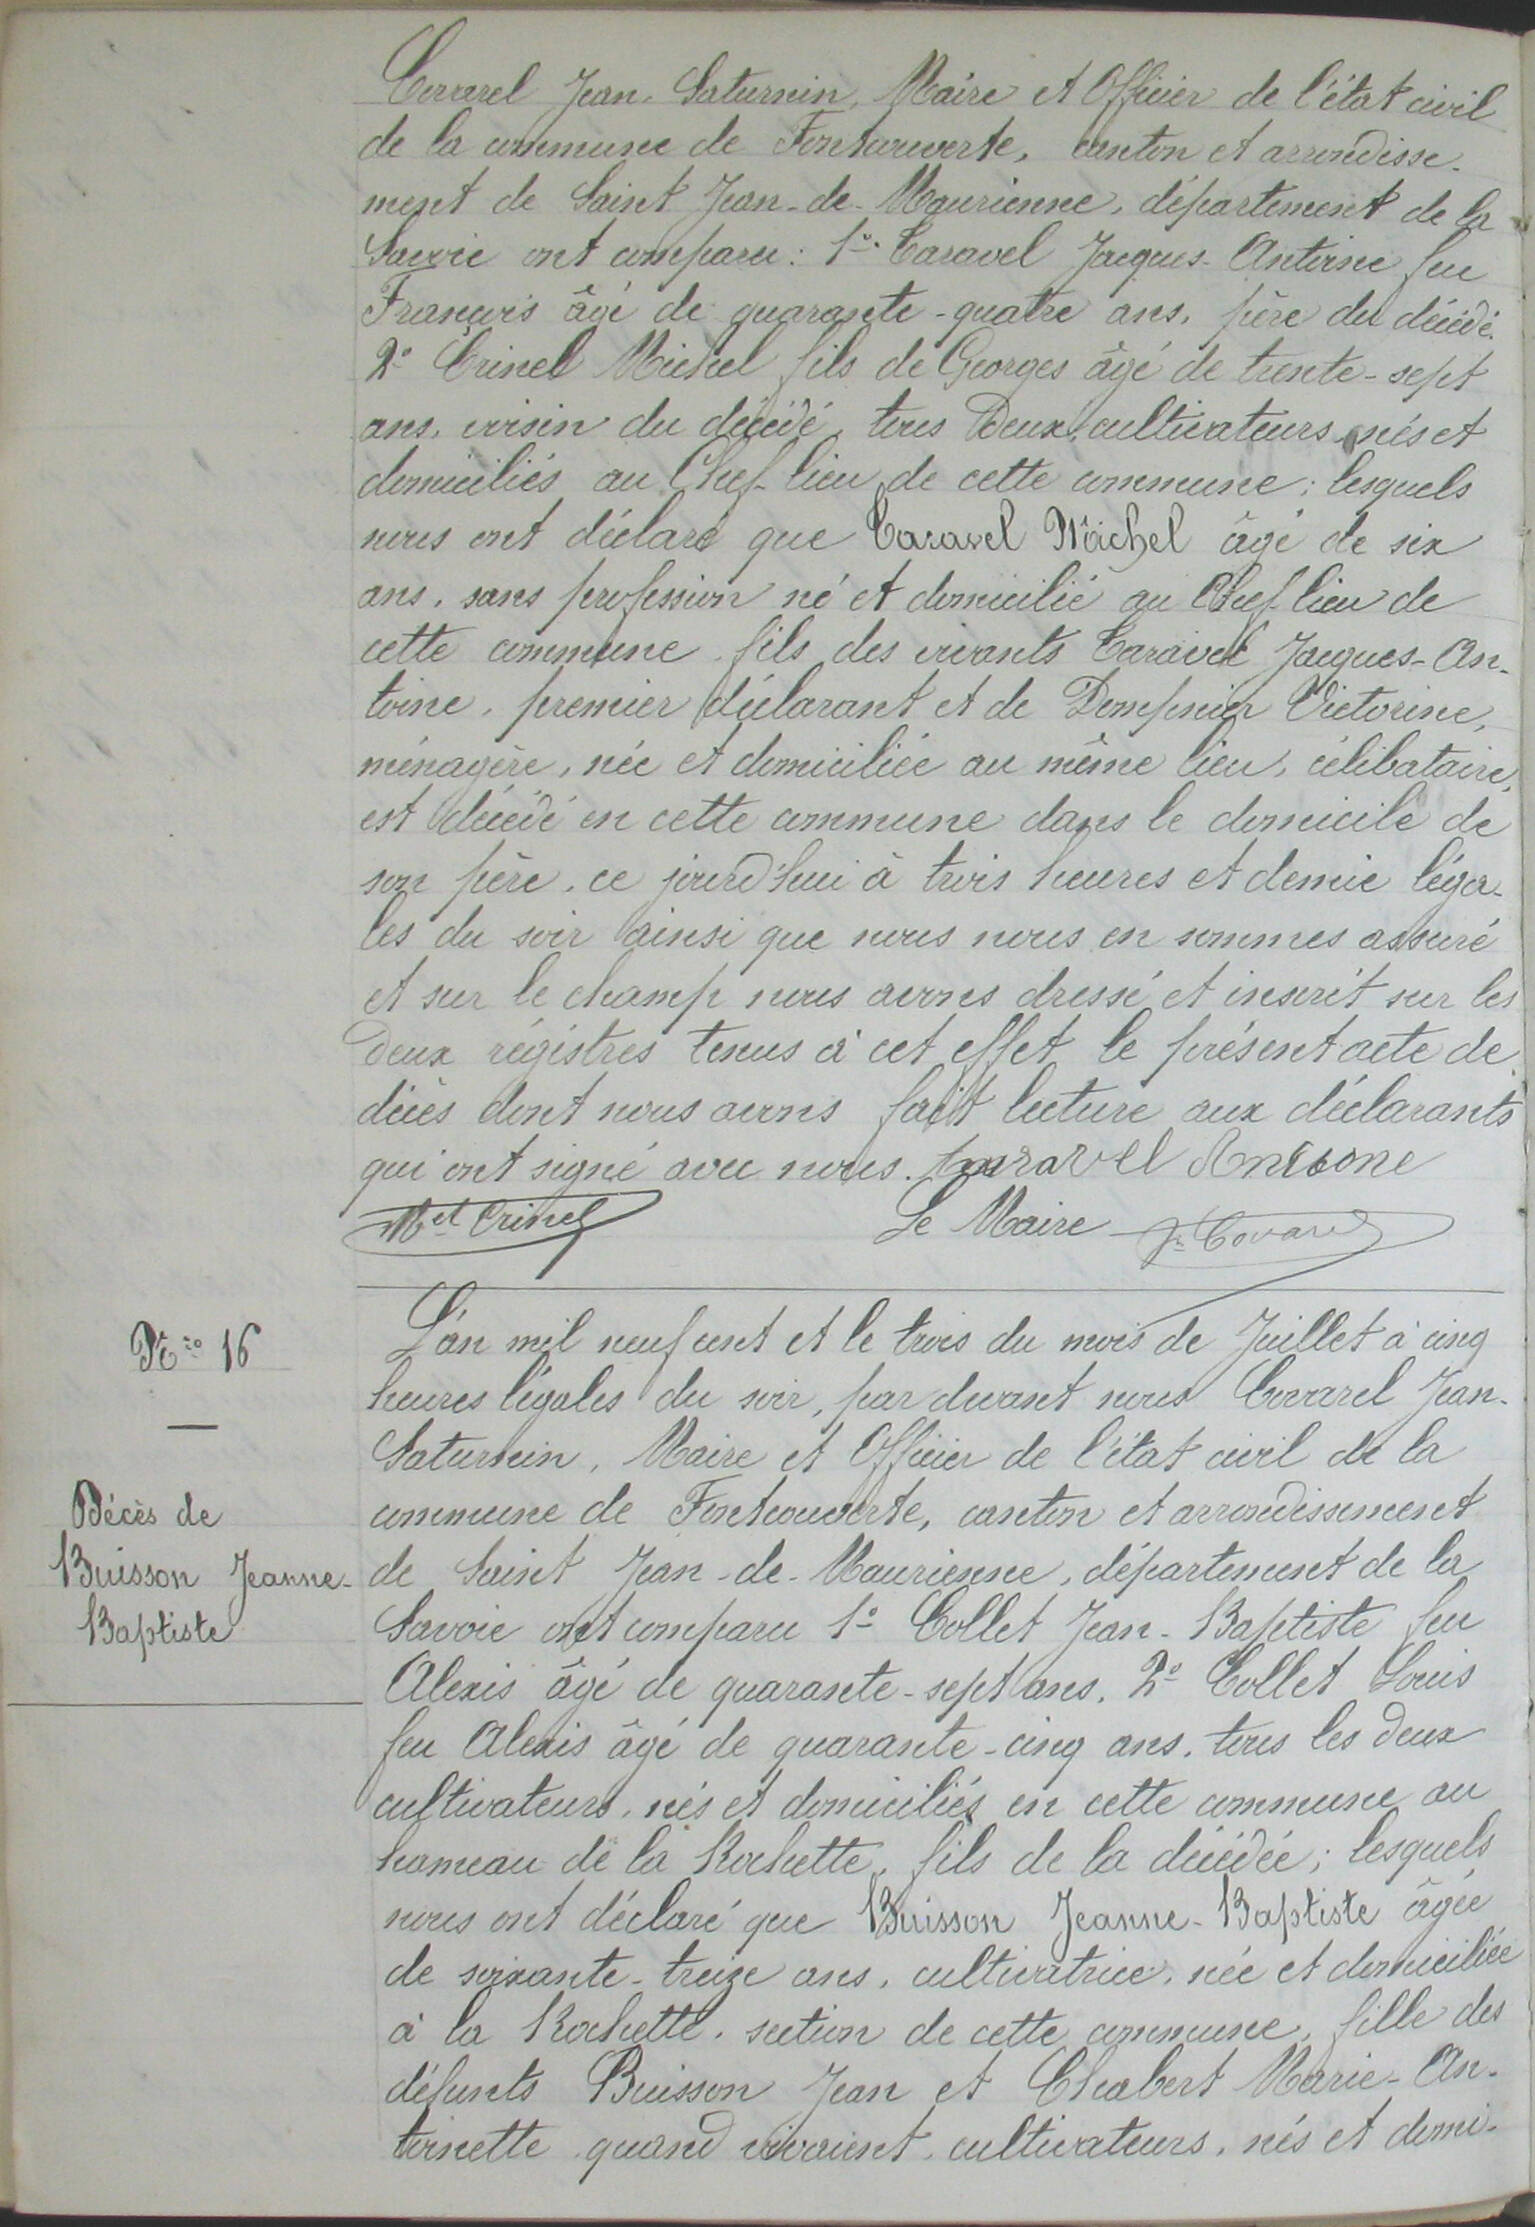 Covarel Jean-Saturnin, Maire et Officier de l'état civil
de la commune de Fontcouverte, canton et arrondisse-
ment de Saint Jean-de-Maurienne, département de la
Savoie ont comparu: 1º Caravel Jacques-Antoine feu
François âgé de quarante-quatre ans, père du décédé.
2º Crinel Michel fils de Georges âgé de trente-sept
ans, voisin du décédé, tous Deux cultivateurs nés et
domiciliés au Chef-lieu de cette commune; lesquels
nous ont déclaré que Caravel Michel âgé de six
ans, sans profession né et domicilié au Chef-lieu de
cette commune, fils des vivants Caravel Jacques-An-
toine, premier déclarant et de Dompnier Victorine,
ménagère, née et domiciliée au même lieu, célibataire,
est décédé en cette commune dans le domicile de
son père, ce jourd'hui à trois heures et demie léga-
les du soir ainsi que nous nous en sommes assuré
et sur le champ nous avons dressé et inscrit sur les
Deux régistres tenus à cet effet le présent acte de
décès dont nous avons fait lecture aux déclarants
qui ont signé avec nous. Caravel Antoone
Mel Crinel Le Maire Jn Covarel
L'an mil neuf cent et le trois du mois de Juillet à cinq
heures légales du soir, par devant nous Covarel Jean-
Saturnin, Maire et Officier de l'état civil de la
commune de Fontcouverte, canton et arrondissement
de Saint Jean-de-Maurienne, département de la
Savoie ont comparu 1º Collet Jean-Baptiste feu
Alexis âgé de quarante-sept ans, 2º Collet Louis
feu Alexis âgé de quarante-cinq ans, tous les Deux
cultivateurs, nés et domiciliés en cette commune au
hameau de la Rochette, fils de la décédée; lesquels
nous ont déclaré que Buisson Jeanne-Baptiste âgée
de soixante-treize ans, cultivatrice, née et domiciliée
à la Rochette, section de cette commune, fille des
défunts Buisson Jean et Chabert Marie-An-
toinette quand vivaient, cultivateurs, nés et domi-
Nº 16
Décès de
Buisson Jeanne-
Baptiste